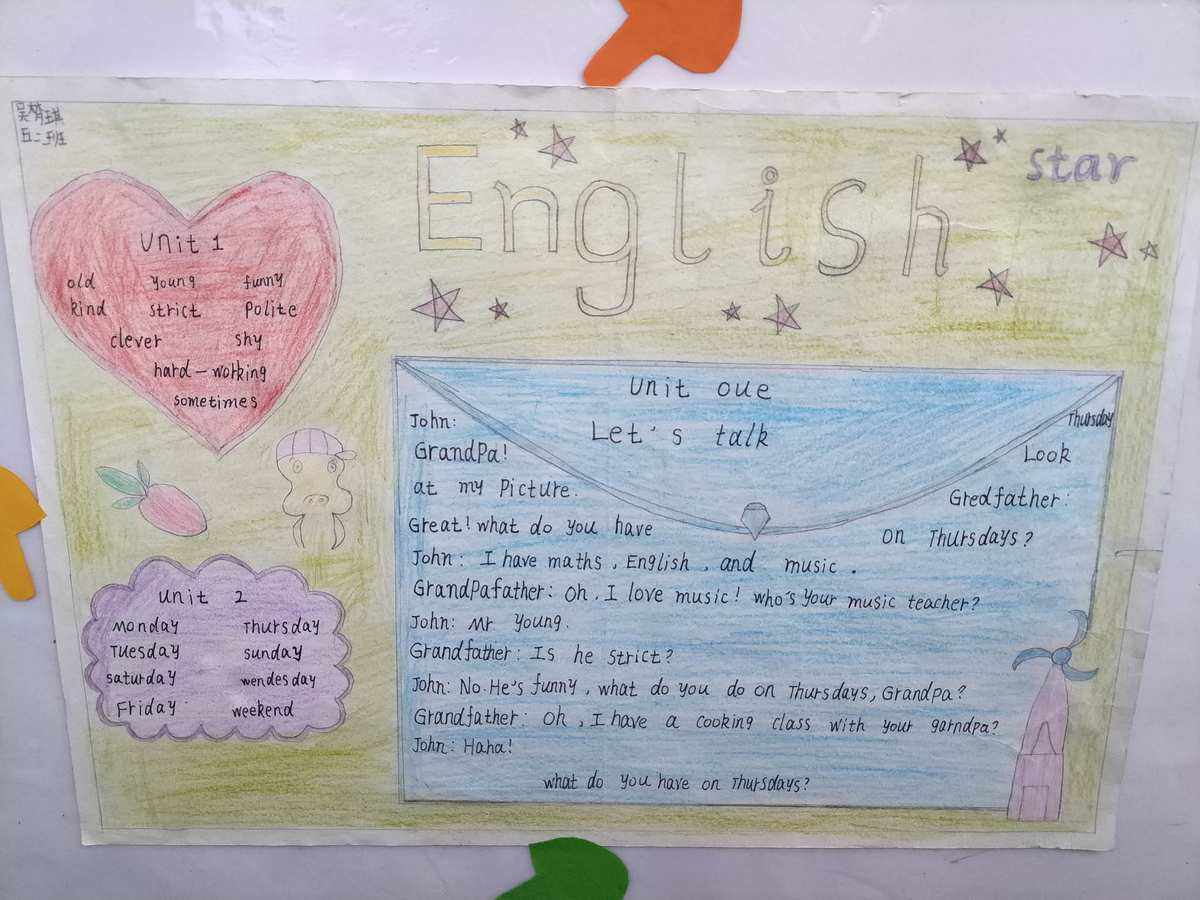 吴梦琪
五二班
English
star
Unit 1
old young funny
kind strict Polite
clever shy
hard-working
sometimes
Unit 2
Monday Thursday
Tuesday sunday
saturday wendesday
Friday weekend
Unit oue
Let's talk
Thursday
John:
GrandPa! Look
at my Picture. Gredfather:
Great! what do you have on Thursdays?
John: I have maths, English, and music.
GrandPafather: Oh, I love music! who's your music teacher?
John: Mr Young.
Grandfather: Is he strict?
John: No. He's funny, what do you do on Thursdays, Grandpa?
Grandfather: Oh, I have a cooking class with your garndpa?
John: Haha!
what do you have on Thursdays?